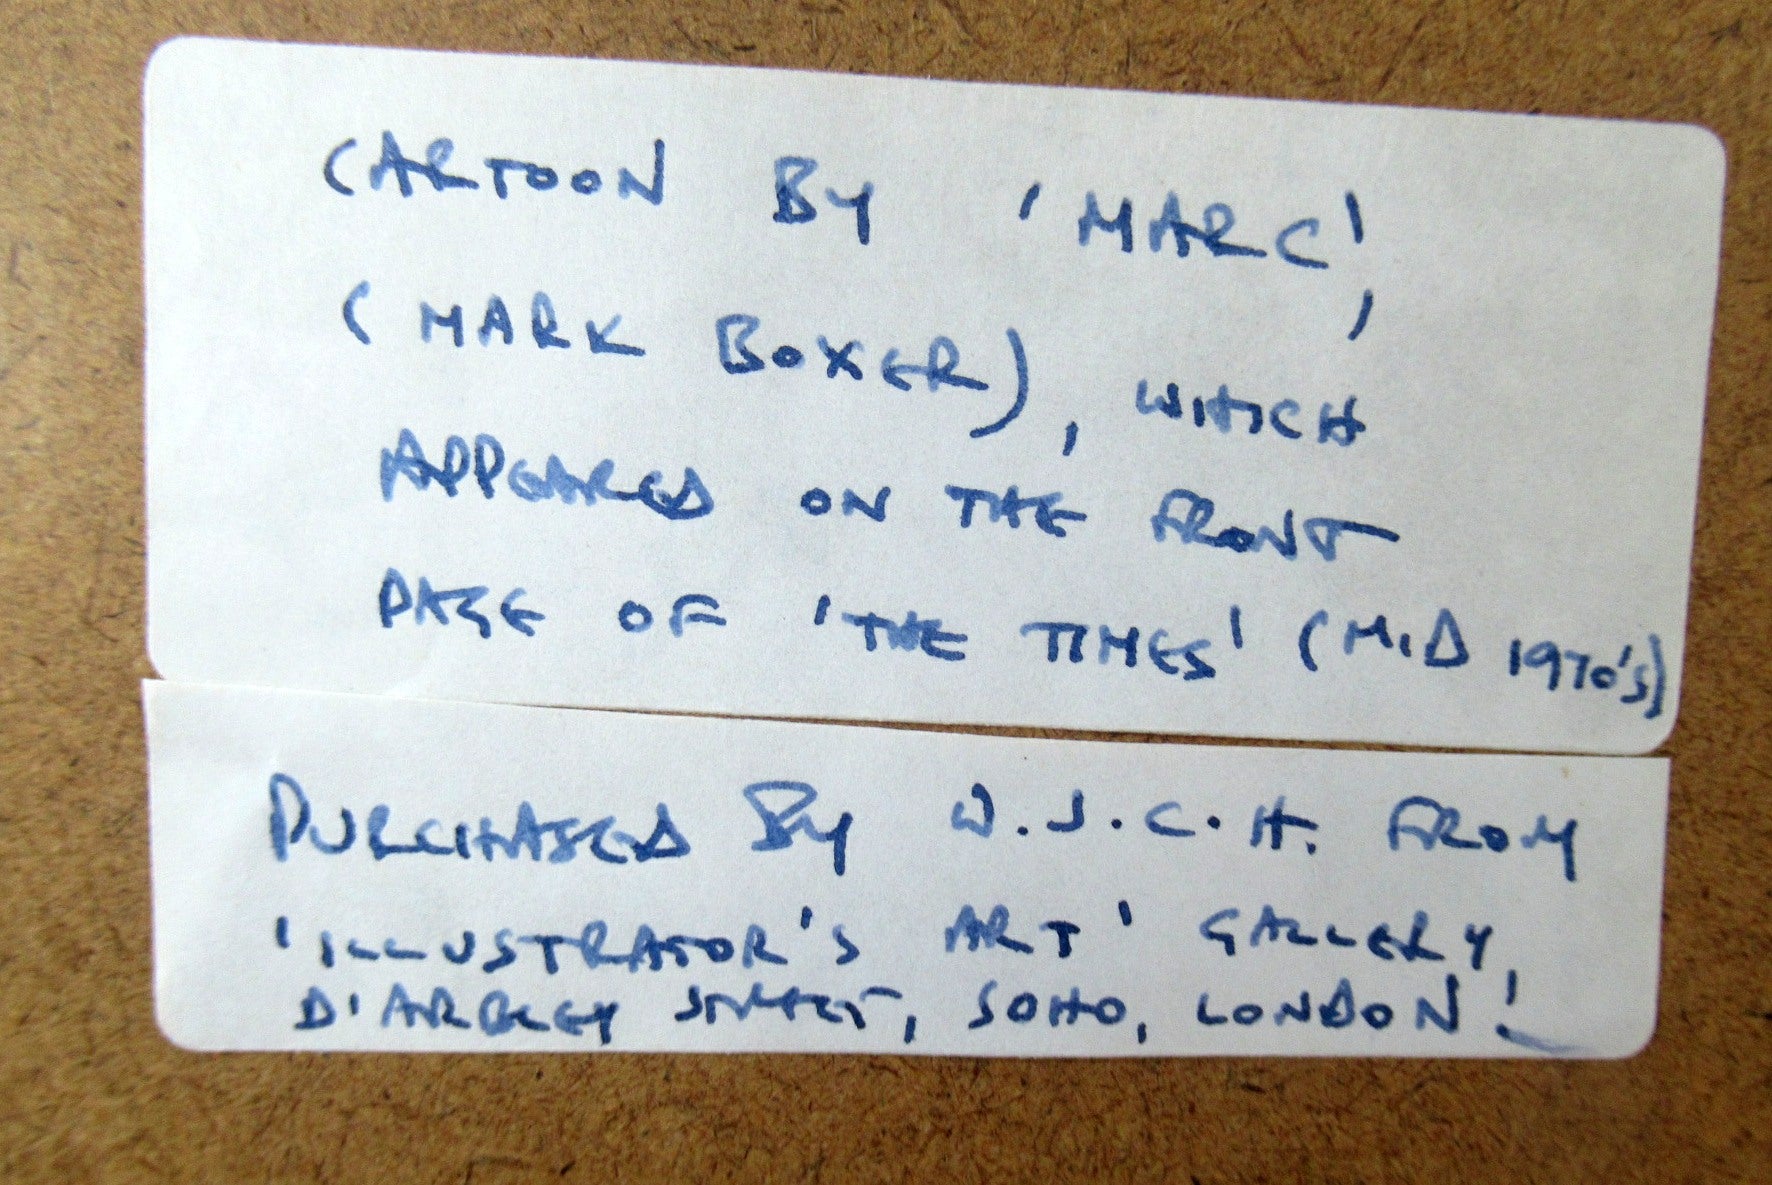 CARTOON BY 'MARC',
(MARK BOXER), WHICH
APPEARED ON THE FRONT
PAGE OF 'THE TIMES' (MID 1970'S)
PURCHASED BY W.J.C.H. FROM
'ILLUSTRATOR'S ART' GALLERY,
D'ARBLEY STREET, SOHO, LONDON!